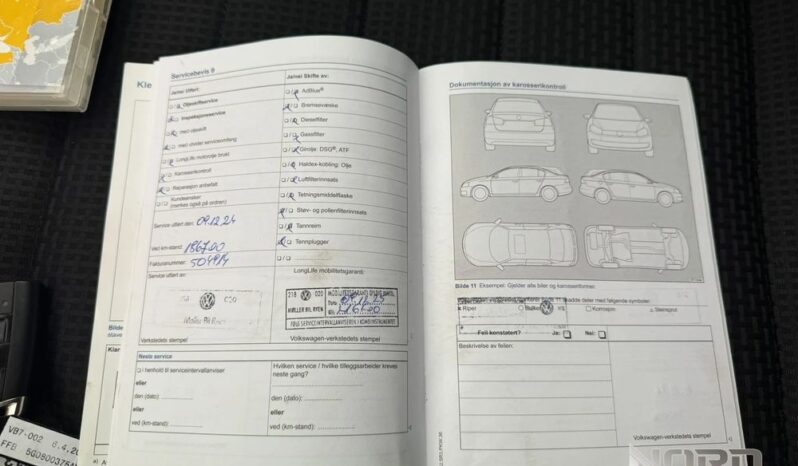 Servicebevis 8
Ja/nei Utført:
Oljeskiftservice
Inspeksjonsservice
med oljeskift
med utvidet serviceomfang
LongLife motorolje brukt
Karosserikontroll
Reparasjon anbefalt
Kundeønsker
(merkes også på ordren)
Service utført den: 09.12.24
Ved km-stand:
Fakturanummer:
Service utført av:
Møller Bil Ryen
Volkswagen-verkstedets stempel
Neste service
i henhold til serviceintervallanviser
eller
den (dato)
eller
ved (km-stand)
Ja/nei Skifte av:
AdBlue®
Bremsevæske
Dieselfilter
Gassfilter
Girolje: DSG®, ATF
Haldex-kobling: Olje
Luftfilterinnsats
Tetningsmiddelflaske
Støv- og pollenfilterinnsats
Tannreim
Tennplugger
LongLife mobilitetsgaranti:
218 020
MØLLER BIL RYEN
FØLG SERVICEINTERVALLANVISEREN I KOMBIINSTRUMENTET
Volkswagen-verkstedets stempel
Hvilken service / hvilke tilleggsarbeider kreves
neste gang?
den (dato):
eller
ved (km-stand):
Dokumentasjon av karosserikontroll
Bilde 11 Eksempel: Gjelder alle biler og karosseriformer.
Riper
Bulker
Korrosjon
Steinsprut
Feil konstatert? Ja: Nei:
Beskrivelse av feilen:
Volkswagen-verkstedets stempel
VB7-002 6.4.20
NORD